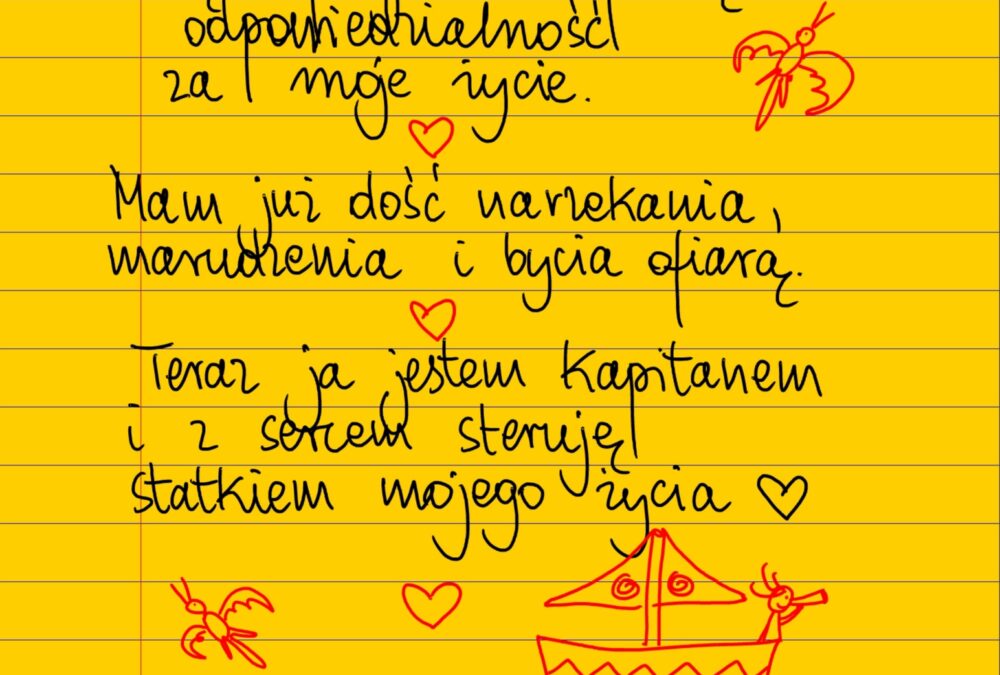 odpowiedzialność
za moje życie.
Mam już dość narzekania,
marudzenia i bycia ofiarą.
Teraz ja jestem kapitanem
i z sercem steruję
statkiem mojego życia